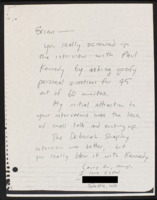 Brian —
You really screwed up
the interview with Paul
Kennedy by asking goofy
personal questions for 45
out of 60 minutes.
My initial attraction to
your interviews was the lack
of small talk and
The Deborah Shapley
interview was better, but
you really blew it with Kennedy.